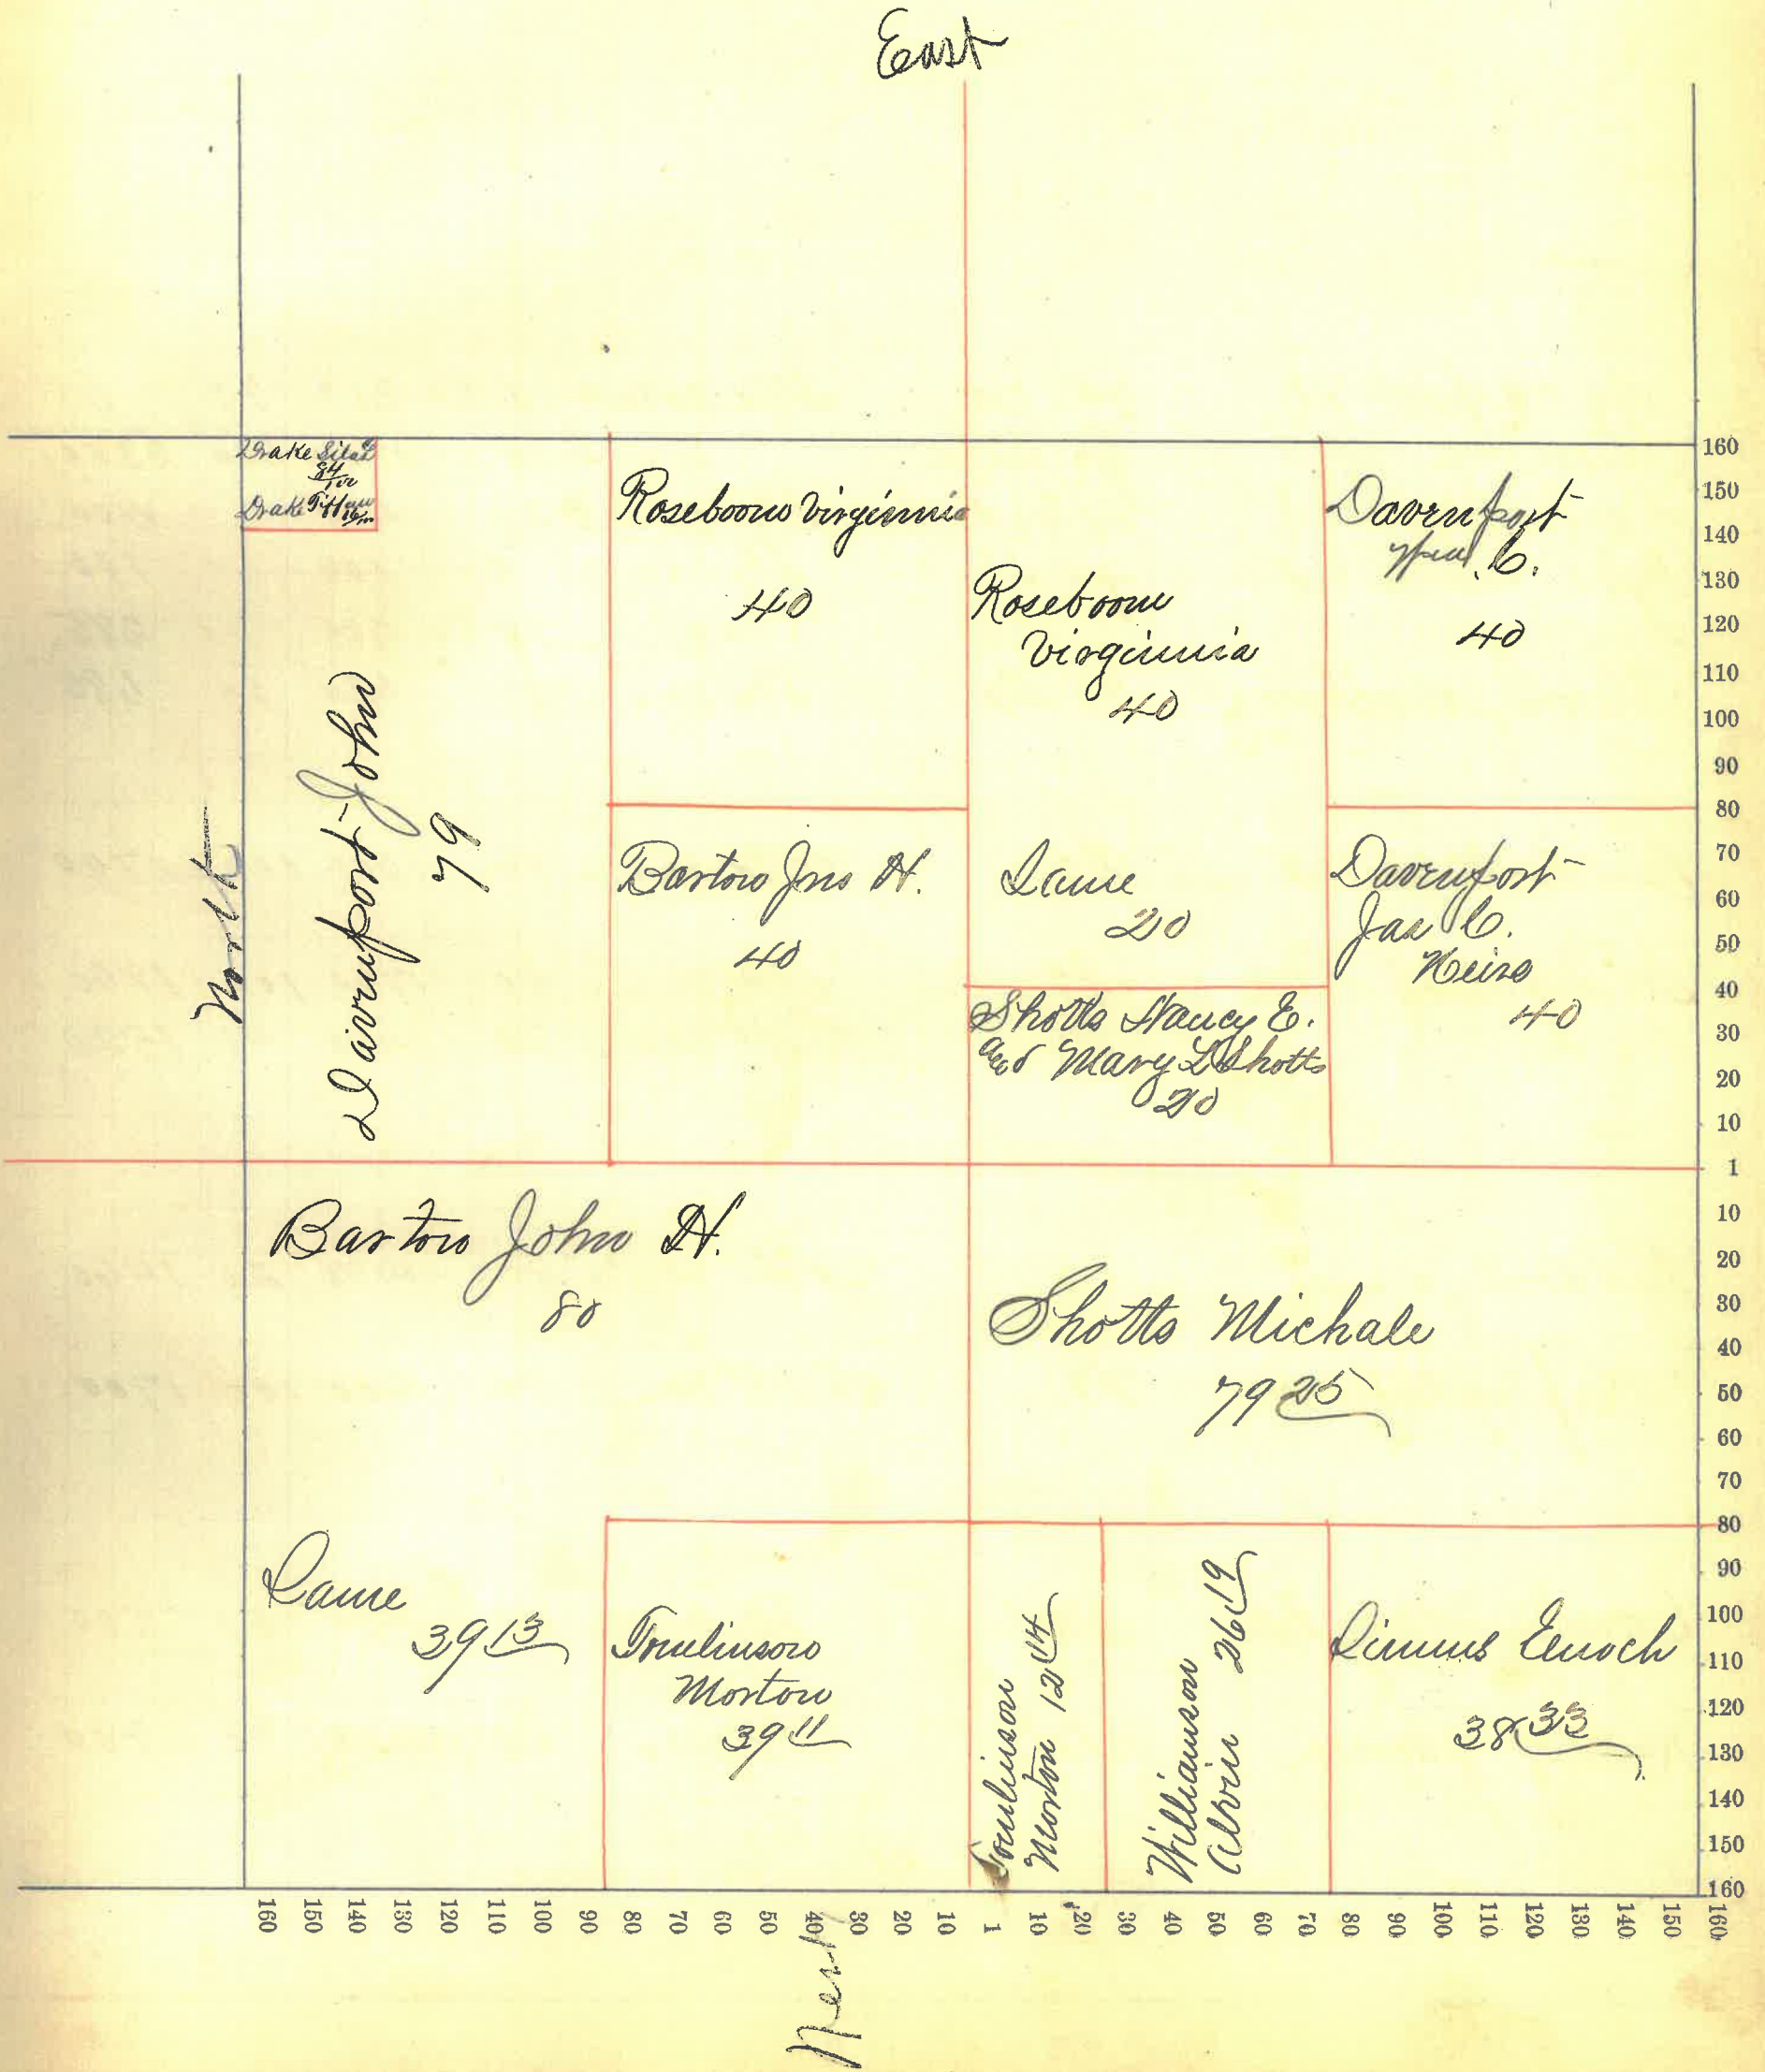 East
North
Drake Silas
84/100
Drake
16/100
Roseboom Virginnia
40
Roseboom
Virginnia
40
Davenport
C.
40
Davenport John
79
Bartow Jno H.
40
Same
20
Davenport
Jas C.
Heirs
40
Shotts Nancy E.
and Mary L Shotts
20
Bartow John H.
80
Shotts Michale
79 25
Same
39 13
Tomlinson
Morton
39 11
Tomlinson
Morton 12 14
Williamson
Alvin 26 19
Enoch
38 33
West
160
150
140
130
120
110
100
90
80
70
60
50
40
30
20
10
1
10
20
30
40
50
60
70
80
90
100
110
120
130
140
150
160
160 150 140 130 120 110 100 90 80 70 60 50 40 30 20 10 1 10 20 30 40 50 60 70 80 90 100 110 120 130 140 150 160